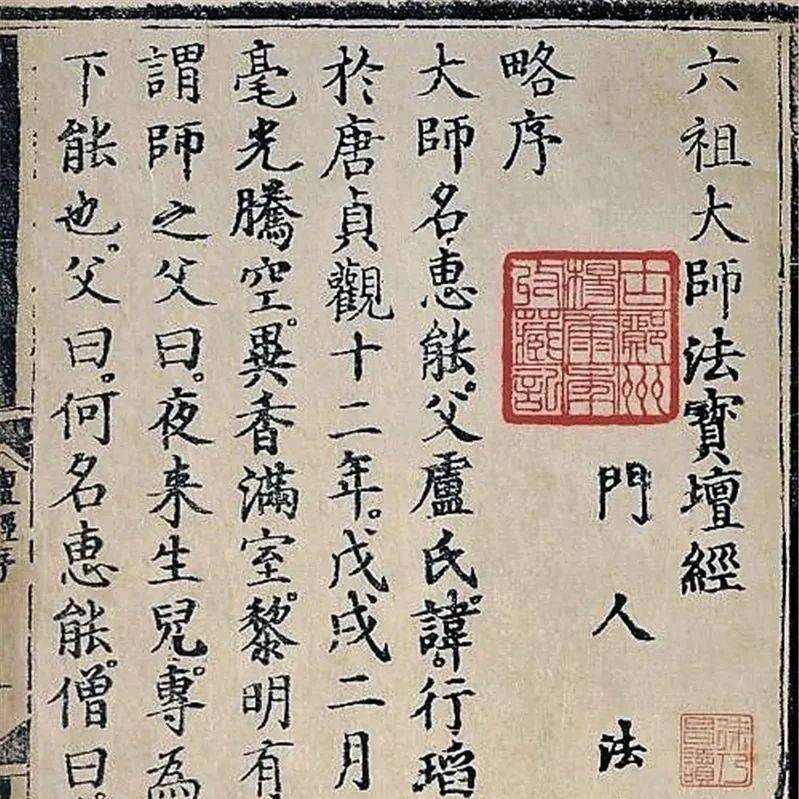 六祖大師法寶壇經
門人法
略序
大師名惠能。父盧氏。諱。行瑫
於唐貞觀十二年。戊戌二月
毫光騰空。異香滿室。黎明有
謂師之父曰。夜來生兒。專為
下能也。父曰。何名惠能。僧曰。
壇經序
徐乃昌讀